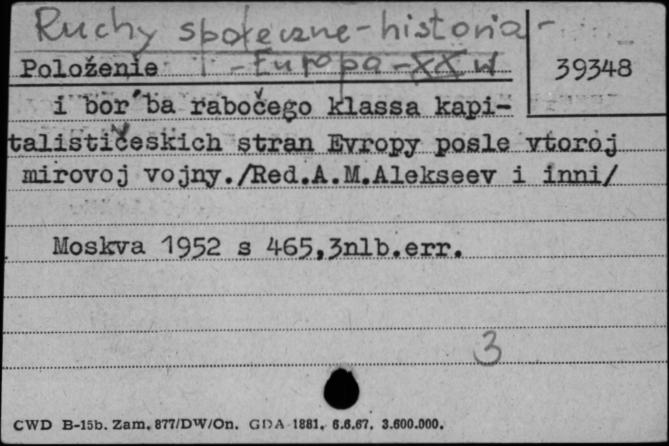 Ruchy społeczne - historia -
- Europa - XX w
Położenie
39348
i bor'ba rabočego klassa kapi-
talističeskich stran Evropy posle vtoroj
mirovoj vojny./Red.A.M.Alekseev i inni/
Moskva 1952 s 465,3nlb.err.
3
CWD B-15b. Zam. 877/DW/On. GDA 1881, 6.6.67. 3.600.000.